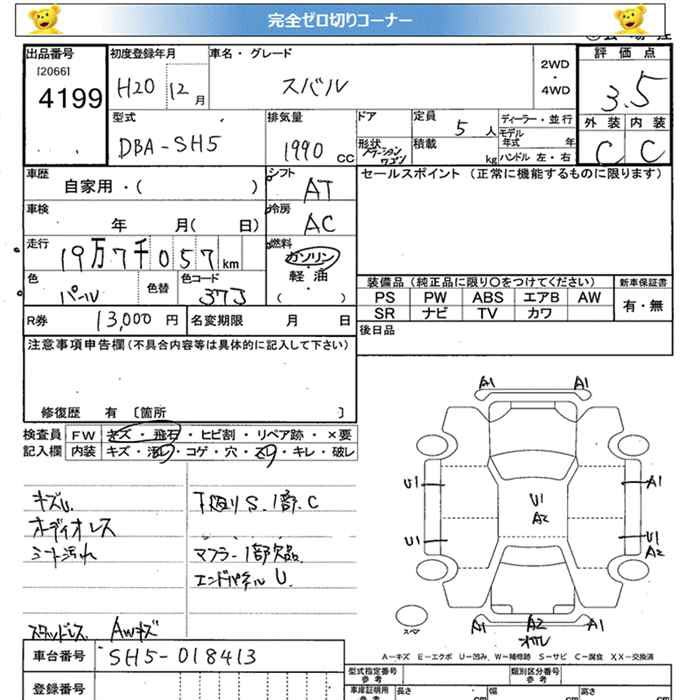 完全ゼロ切りコーナー
出品番号 初度登録年月 車名・グレード 評価点
[2066]
4199 H20 12月 スバル 2WD・4WD 3.5
型式 排気量 ドア 定員 ディーラー・並行 外装 内装
DBA-SH5 1990 CC 形状 ステーションワゴン 5人 積載 kg モデル年式 年 ハンドル 左・右 C C
車歴 シフト セールスポイント(正常に機能するものに限ります)
自家用・( ) AT
車検 冷房
年 月( 日) AC
走行 燃料
19万7千057km ガソリン
色 色替 色コード 軽・油
パール 37J ( )
装備品(純正品に限り○をつけてください) 新車保証書
PS PW ABS エアB AW 有・無
SR ナビ TV カワ
R券 13,000円 名変期限 月 日 後日品
注意事項申告欄(不具合内容等は具体的に記入して下さい)
修復歴 有 〔箇所 〕
検査員 FW キズ・飛石・ヒビ割・リペア跡・×要
記入欄 内装 キズ・汚レ・コゲ・穴・スリ・キレ・破レ
キズU. 下廻りS.1部.C
オーディオレス
シート汚れ マフラー1部欠品
エンドパネルU.
スタッドレス AWキズ
A1 A1
U1 A1
U1
A2
U1 U1
A2
スペア A1 A2 A1
A-キズ E-エクボ U-凹み W-補修跡 S-サビ C-腐食 XX-交換済
車台番号 SH5-018413
登録番号
型式指定番号 参考 類別区分番号 参考
車庫証明用 参考 長さ cm 幅 cm 高さ cm